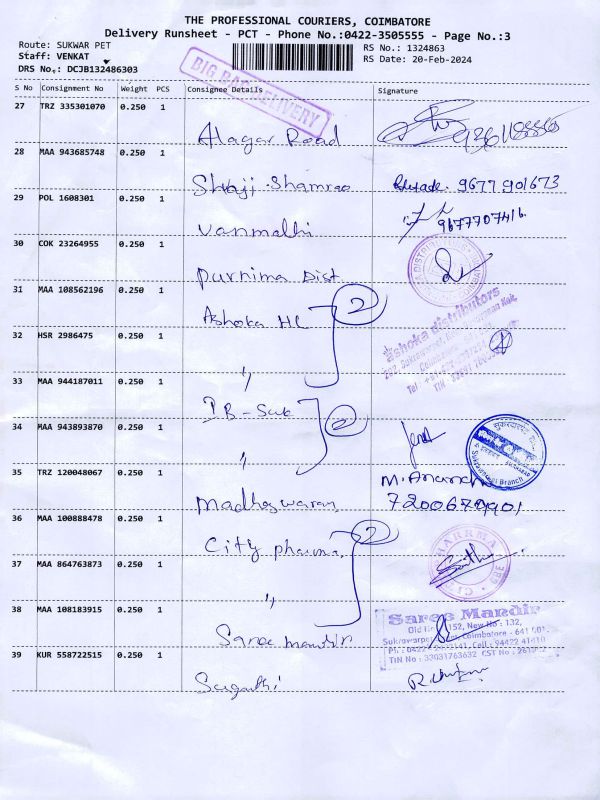 THE PROFESSIONAL COURIERS, COIMBATORE
Delivery Runsheet - PCT - Phone No.:0422-3505555 - Page No.:3
Route: SUKWAR PET
RS No.: 1324863
Staff: VENKAT
RS Date: 20-Feb-2024
DRS No.: DCJB132486303
BIG BAG DELIVERY
S No Consignment No Weight PCS Consignee Details Signature
27 TRZ 335301070 0.250 1
Alagar Road
28 MAA 943685748 0.250 1
Shaji Shamrao 9677901673
29 POL 1608301 0.250 1
Vanmalhi 9677707416
30 COK 23264955 0.250 1
Purnima Dist
31 MAA 108562196 0.250 1
Ashoka HC 2
Ashoka distributors
32 HSR 2986475 0.250 1
"
33 MAA 944187011 0.250 1
IB-Suk 2
34 MAA 943893870 0.250 1
"
Sukrawarpet Branch
35 TRZ 120048067 0.250 1
Madheswaran
M. Anandh
7200679901
36 MAA 100888478 0.250 1
City pharma 2
37 MAA 864763873 0.250 1
"
38 MAA 108183915 0.250 1
Saree mandir
Saree Mandir
152, New No : 132,
Coimbatore - 641 001
TIN No : 33031763632 CST No :
39 KUR 558722515 0.250 1
Suganthi